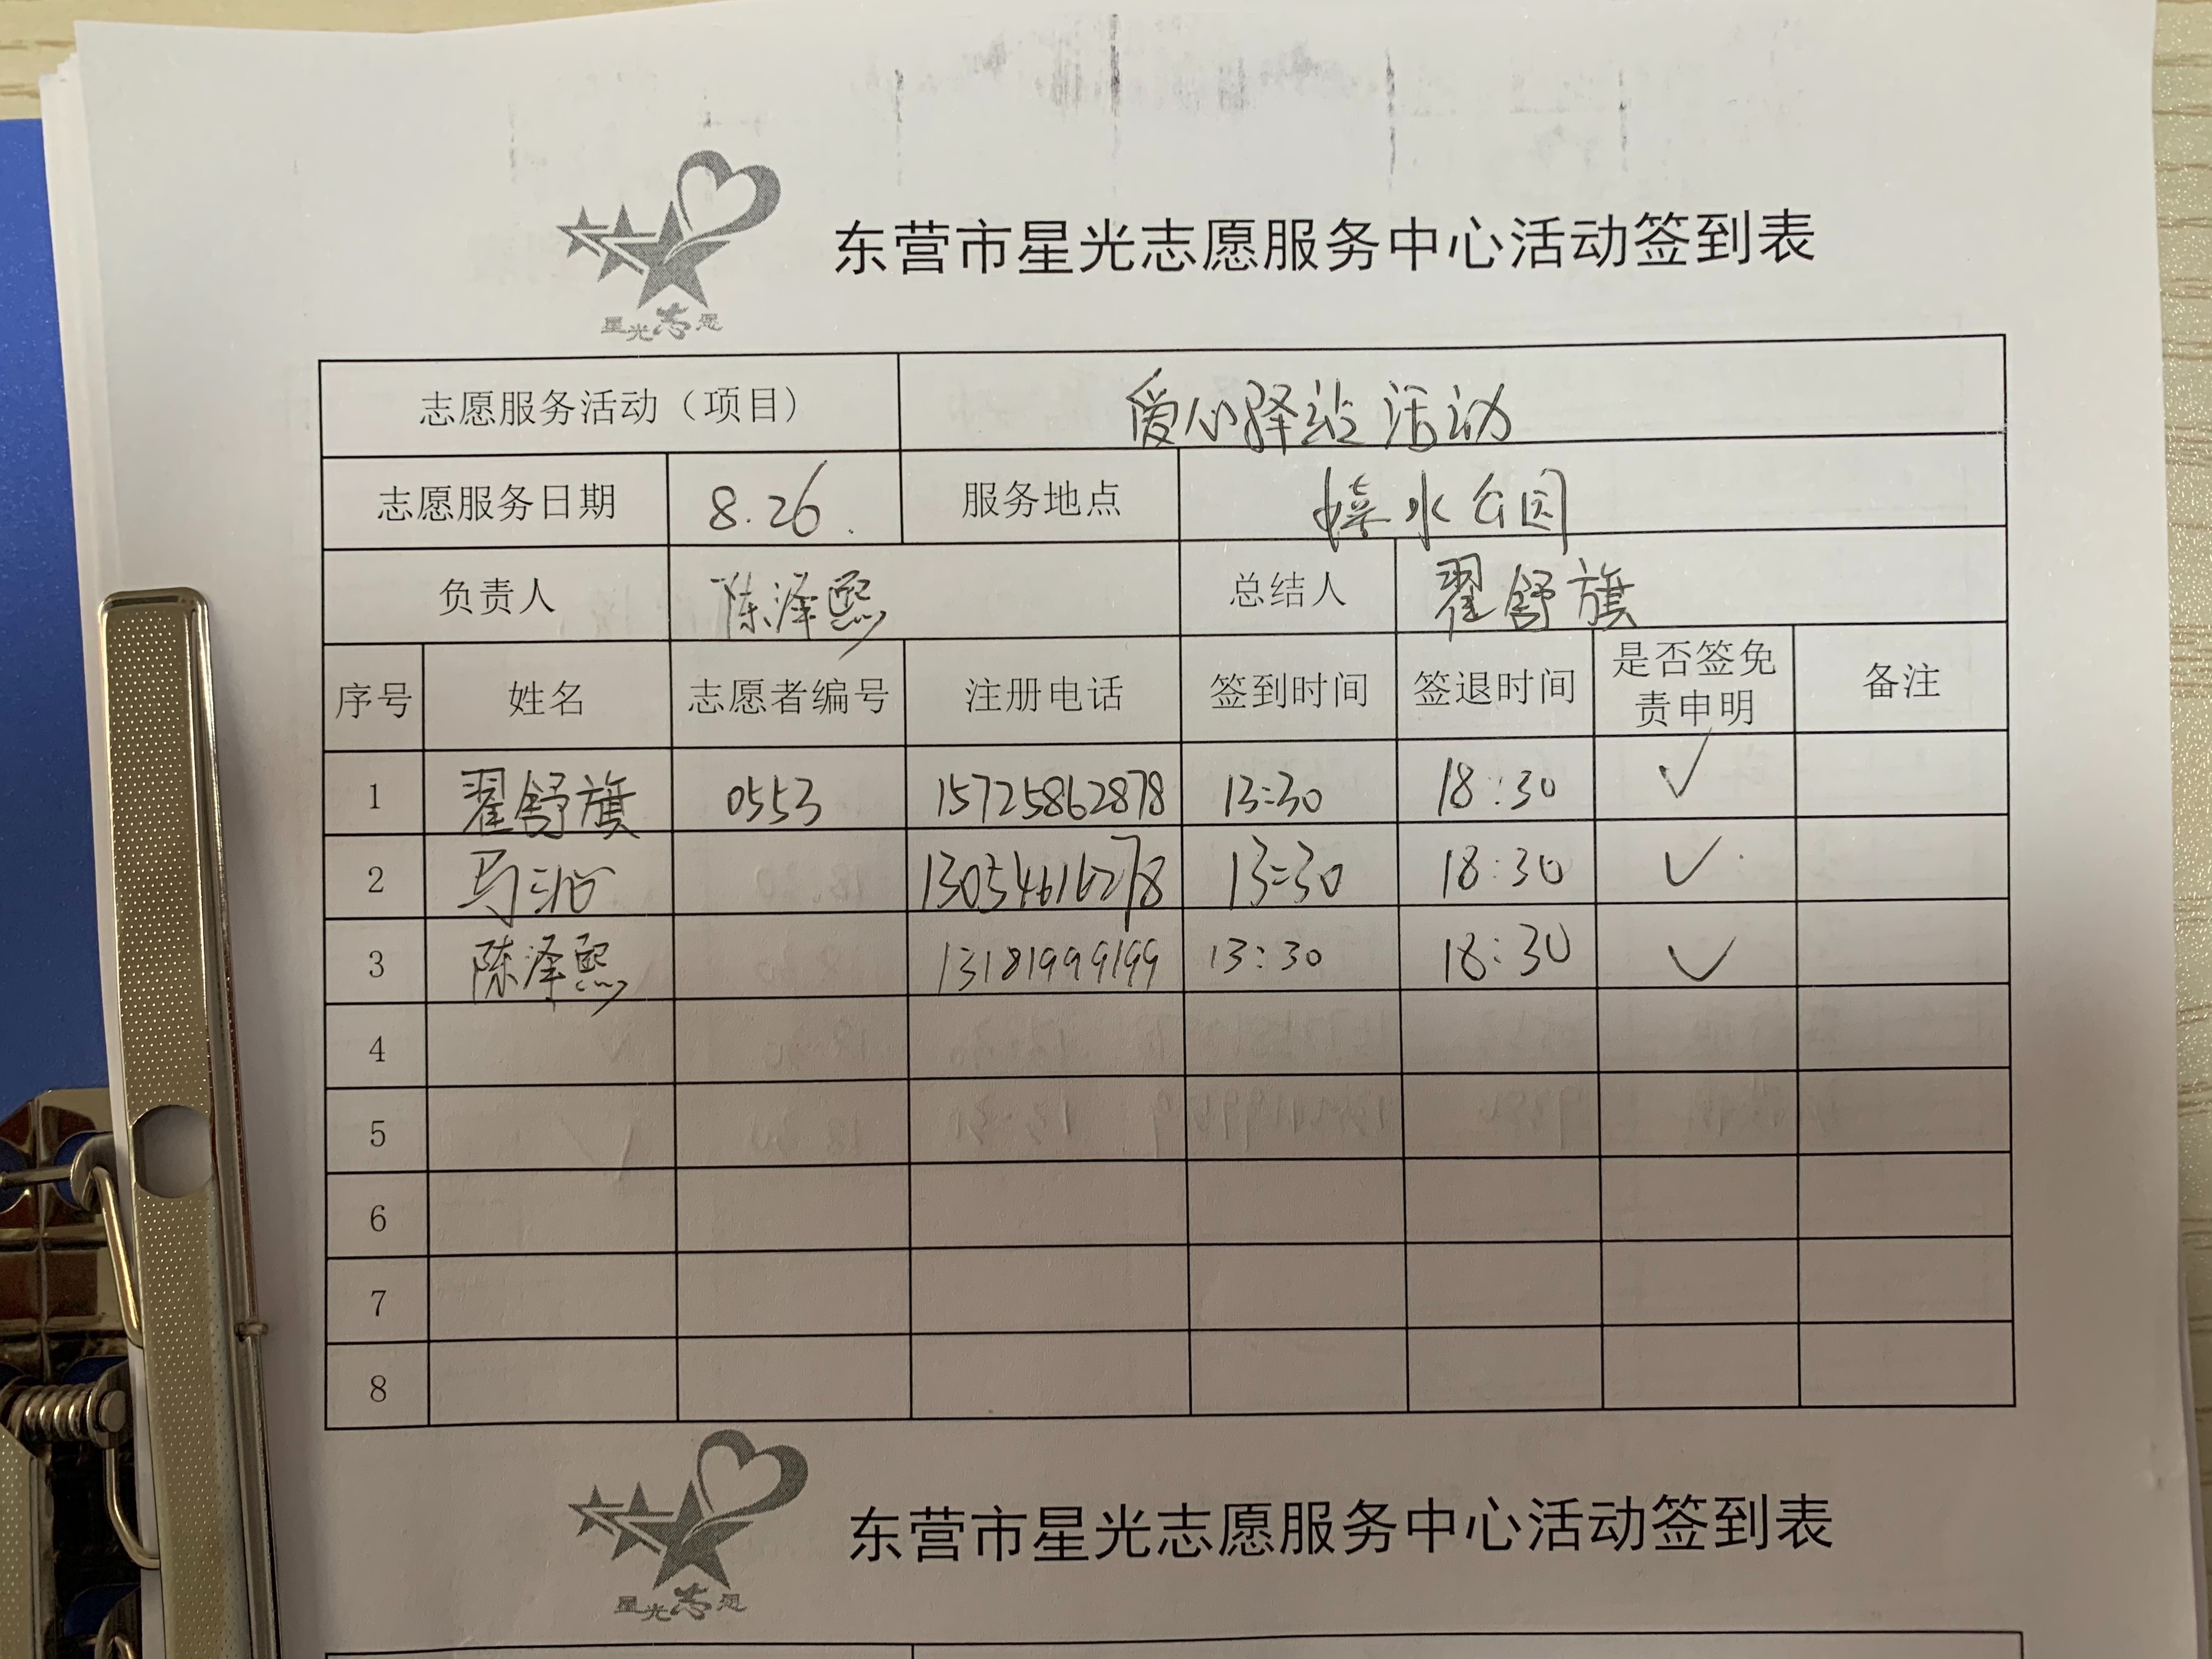 东营市星光志愿服务中心活动签到表
星光志愿
志愿服务活动（项目） 爱心驿站活动
志愿服务日期 8.26. 服务地点 水公园
负责人 陈泽熙 总结人 翟舒旗
序号 姓名 志愿者编号 注册电话 签到时间 签退时间 是否签免责申明 备注
1 翟舒旗 0553 15725862878 13:30 18:30 ✓
2 马 13054616278 13:30 18:30 ✓
3 陈泽熙 13181999199 13:30 18:30 ✓
4
5
6
7
8
东营市星光志愿服务中心活动签到表
星光志愿